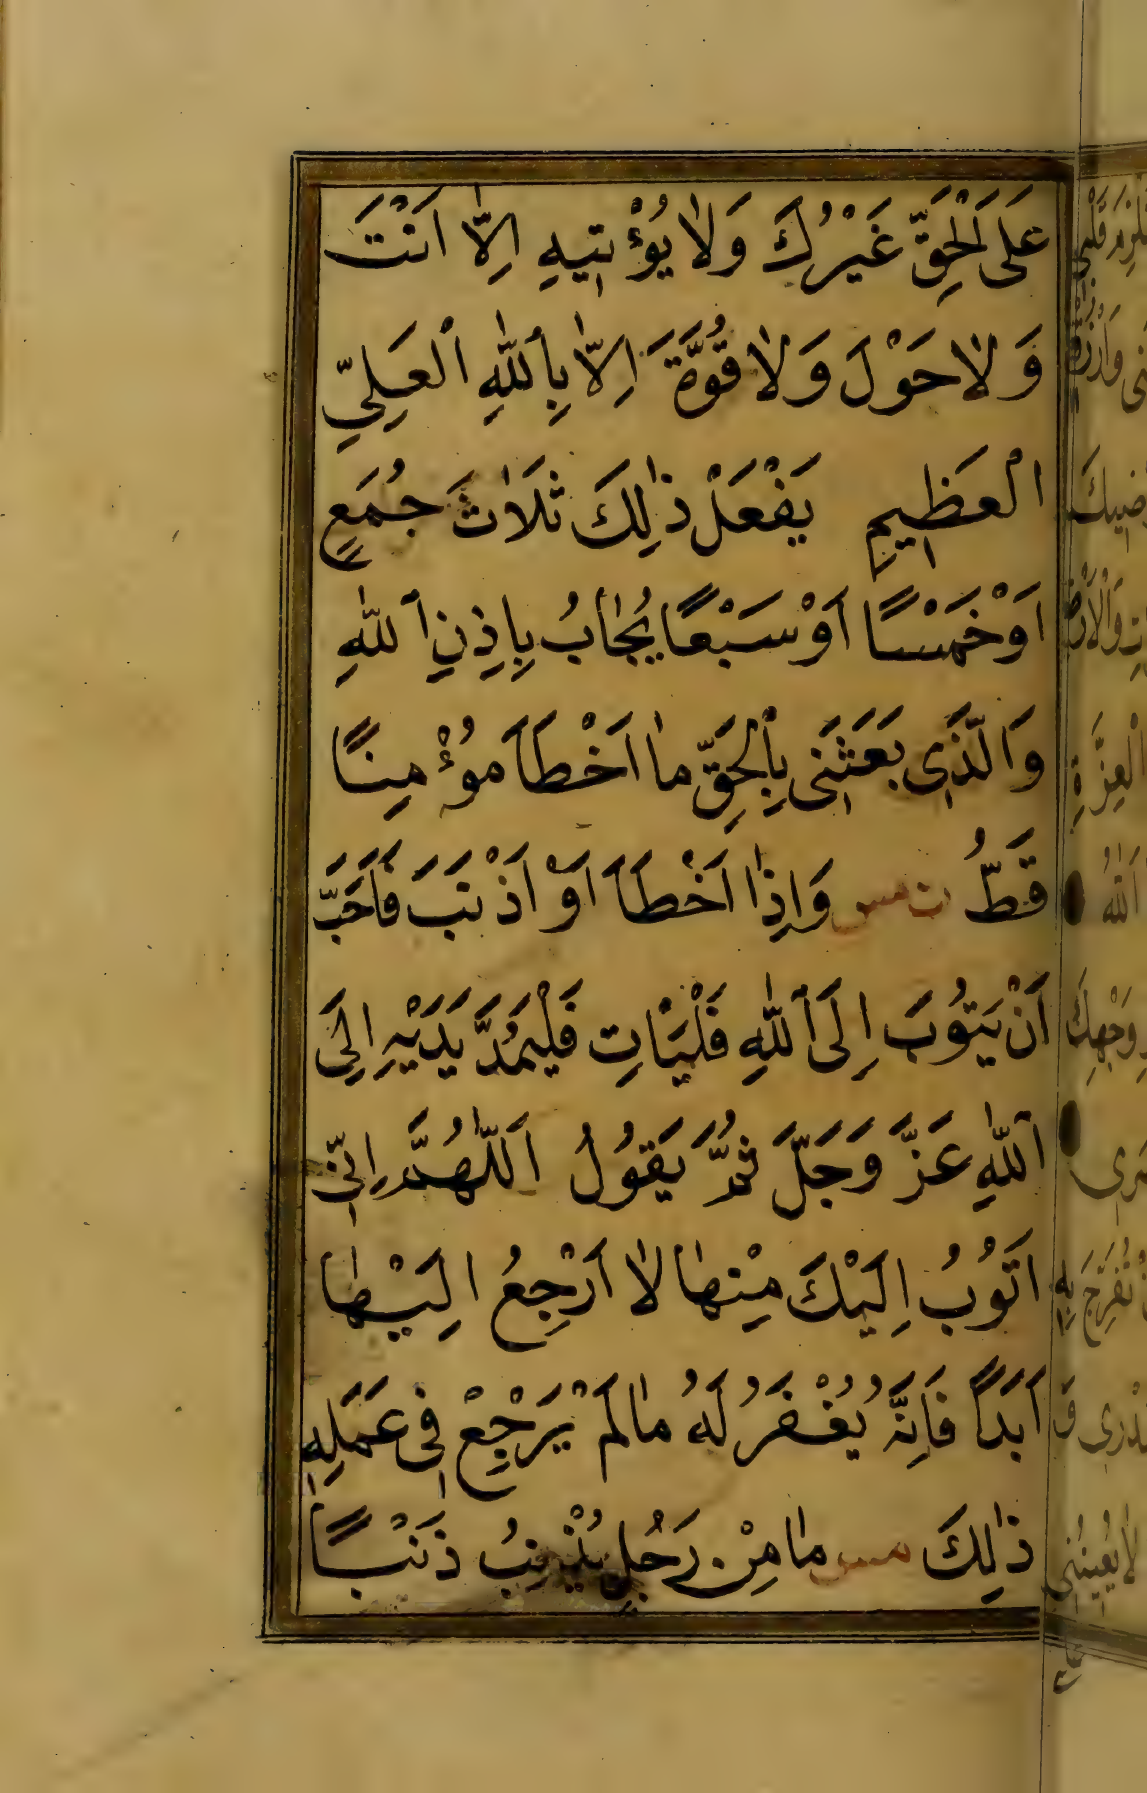 عَلَى الْحَقِّ غَيْرُكَ وَلَا يُؤْتِيهِ اِلَّا اَنْتَ
وَلَا حَوْلَ وَلَا قُوَّةَ اِلَّا بِاللّٰهِ الْعَلِيِّ
الْعَظِيمِ يَفْعَلْ ذٰلِكَ ثَلَاثَ جُمَعٍ
اَوْ خَمْسًا اَوْ سَبْعًا يُجَابُ بِاِذِنِ اللّٰهِ
وَالَّذِي بَعَثَنِي بِالْحَقِّ مَا اَخْطَاَ مُؤْمِنًا
قَطُّ ت مس وَاِذَا اَخْطَاَ اَوْ اَذْنَبَ فَاَحَبَّ
اَنْ يَتُوبَ اِلَى اللّٰهِ فَلْيَاْتِ فَلْيَمُدَّ يَدَيْهِ اِلَى
اللّٰهِ عَزَّ وَجَلَّ ثُمَّ يَقُولُ اَللّٰهُمَّ اِنِّي
اَتُوبُ اِلَيْكَ مِنْهَا لَا اَرْجِعُ اِلَيْهَا
اَبَدًا فَاِنَّهُ يُغْفَرُ لَهُ مَا لَمْ يَرْجِعْ فِي عَمَلِهِ
ذٰلِكَ مس مَا مِنْ رَجُلٍ يُذْنِبُ ذَنْبًا